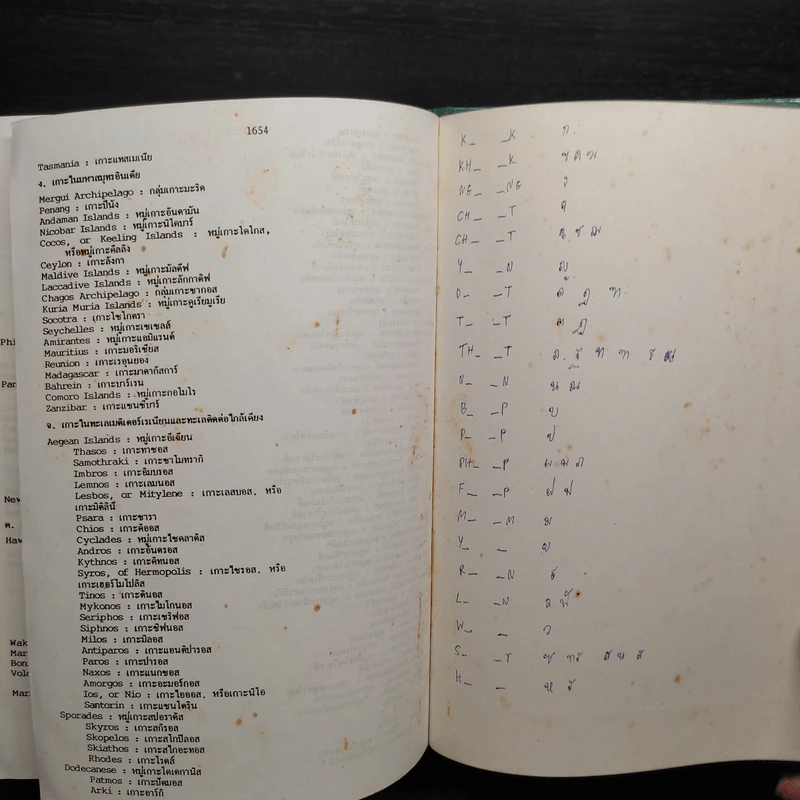 1654
Tasmania : เกาะแทสเมเนีย
ง. เกาะในมหาสมุทรอินเดีย
Mergui Archipelago : กลุ่มเกาะมะริด
Penang : เกาะปีนัง
Andaman Islands : หมู่เกาะอันดามัน
Nicobar Islands : หมู่เกาะนิโคบาร์
Cocos, or Keeling Islands : หมู่เกาะโคโกส,
หรือหมู่เกาะคีลลิง
Ceylon : เกาะลังกา
Maldive Islands : หมู่เกาะมัลดีฟ
Laccadive Islands : หมู่เกาะลักกาดิฟ
Chagos Archipelago : กลุ่มเกาะชากอส
Kuria Muria Islands : หมู่เกาะคูเรียมูเรีย
Socotra : เกาะโซโกตรา
Seychelles : หมู่เกาะเซเชลส์
Amirantes : หมู่เกาะแอมิแรนต์
Mauritius : เกาะมอริเชียส
Reunion : เกาะเรอูนยอง
Madagascar : เกาะมาดากัสการ์
Bahrein : เกาะบาร์เรน
Comoro Islands : หมู่เกาะกอโมโร
Zanzibar : เกาะแซนซิบาร์
จ. เกาะในทะเลเมดิเตอร์เรเนียนและทะเลติดต่อใกล้เคียง
Aegean Islands : หมู่เกาะอีเจียน
Thasos : เกาะทาซอส
Samothraki : เกาะซาโมทรากิ
Imbros : เกาะอิมบรอส
Lemnos : เกาะเลมนอส
Lesbos, or Mitylene : เกาะเลสบอส. หรือ
เกาะมิติลินี
Psara : เกาะซารา
Chios : เกาะคิออส
Cyclades : หมู่เกาะไซคลาดิส
Andros : เกาะอันดรอส
Kythnos : เกาะคิทนอส
Syros, of Hermopolis : เกาะไซรอส. หรือ
เกาะเฮอร์โมโปลิส
Tinos : เกาะตินอส
Mykonos : เกาะไมโกนอส
Seriphos : เกาะเซริฟอส
Siphnos : เกาะซิฟนอส
Milos : เกาะมิลอส
Antiparos : เกาะแอนติปารอส
Paros : เกาะปารอส
Naxos : เกาะแนกซอส
Amorgos : เกาะอะมอร์กอส
Ios, or Nio : เกาะไอออส. หรือเกาะนิโอ
Santorin : เกาะแซนโตริน
Sporades : หมู่เกาะสปอราดิส
Skyros : เกาะสกิรอส
Skopelos : เกาะสโกปีลอส
Skiathos : เกาะสไกอะทอส
Rhodes : เกาะโรดส์
Dodecanese : หมู่เกาะโดเดกานีส
Patmos : เกาะปัตมอส
Arki : เกาะอาร์กิ
Phi
Par
New
ค.
Haw
Wak
Mar
Bon
Volc
Mar
K_ _K ก.
KH_ _K ข ค ฆ
NG_ _NG ง
CH_ _T จ
CH_ _T ฉ ช ฌ
Y_ _N ญ
D_ _T ด ฎ ฑ
T_ _T ต ฏ
TH_ _T ถ ฐ ท ฑ ธ ฒ
N_ _N น ณ
B_ _P บ
P_ _P ป
PH_ _P ผ พ ภ
F_ _P ฝ ฟ
M_ _M ม
Y_ _ ย
R_ _N ร
L_ _N ล ฬ
W_ _ ว
S_ _T ซ ทร ศ ษ ส
H_ _ ห ฮ